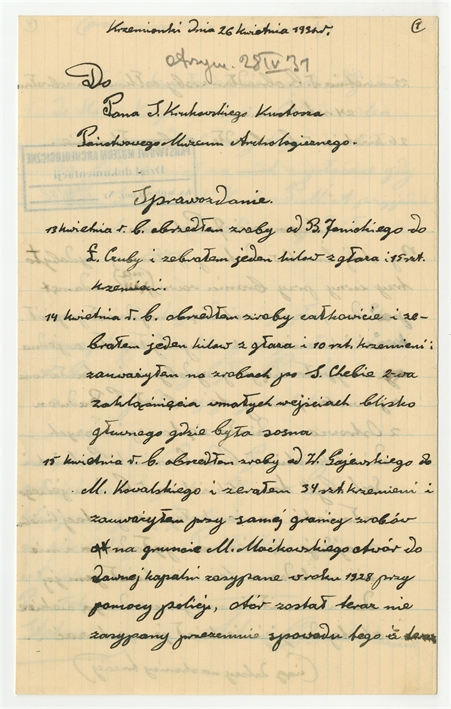 Krzemionki dnia 26 kwietnia 1931 r.
1
otrzym. 28 IV 31
Do
Pana S. Krukowskiego Kustosza
Państwowego Muzeum Archeologicznego.
Sprawozdanie.
13 kwietnia r. b. obszedłem zroby od B. Jenickiego do
Ł. Czuby i zebrałem jeden kilow z głaza i 15 szt.
krzemieni.
14 kwietnia r. b. obszedłem zroby całkowicie i ze-
brałem jeden kilow z głaza i 10 szt. krzemieni i
zauważyłem na zrobach po S. Chebie 2wa
zaklęśnięcia w małych wejściach blisko
głównego gdzie była sosna
15 kwietnia r. b. obszedłem zroby od Wł. Gajewskiego do
M. Kowalskiego i zerałem 34 szt. krzemieni i
zauważyłem przy samej granicy zrobów
na gruncie M. Maćkowskiego otwór do
dawnej kapalni zasypane w roku 1928 przy
pomocy policji, otór został teraz nie
zasypany przezemnie spowodu tego iż